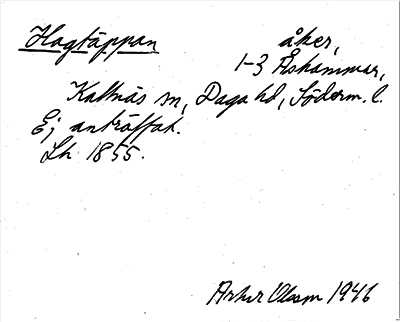 Hagtäppan åker,
1-3 Åskammar,
Kattnäs sn, Daga hd, Söderm. l.
Ej anträffat.
Lh 1855.
Artur Olsson 1946